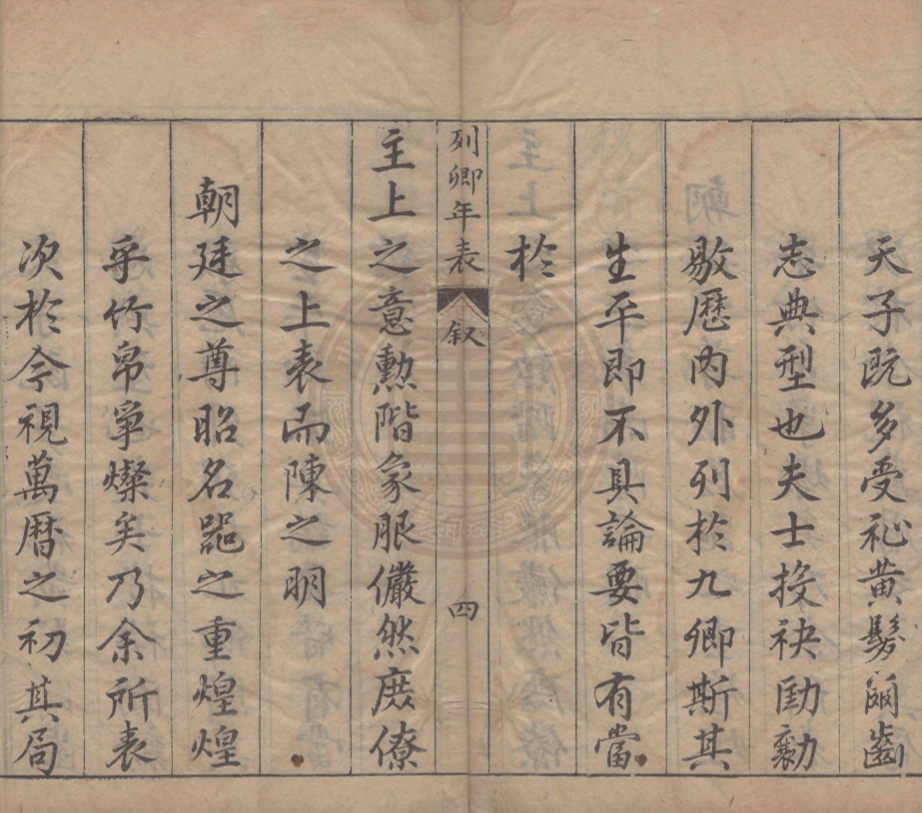 天子既多受祉黄髮兒齒
志典型也夫士投袂劻勷
敭歷内外列於九卿斯其
生平即不具論要皆有當
於
列卿年表 叙 四
主上之意勲階象服儼然庶僚
之上表而陳之明
朝廷之尊昭名器之重煌煌
乎竹帛爭燦矣乃余所表
次於今視萬曆之初其局